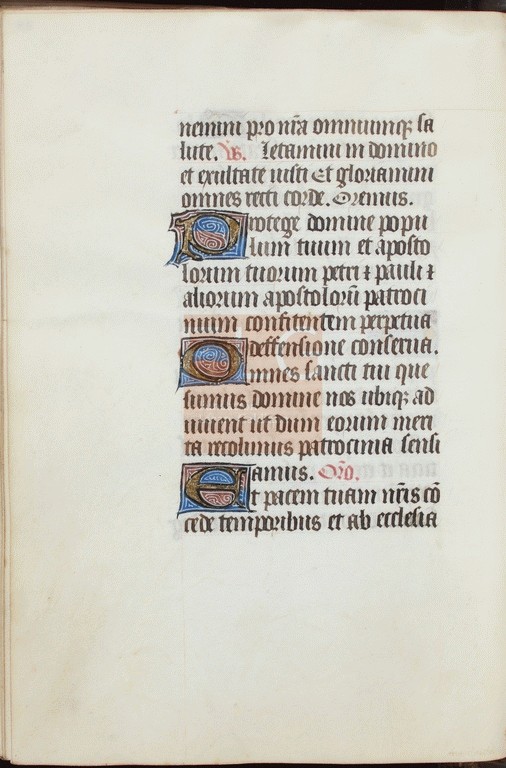 nemini pro nr̃a omniumqꝫ sa
lute. Vs. Letamini in domino
et exultate iusti Et gloriamini
omnes recti corde. Oremus.
Protege domine popu
lum tuum et aposto
lorum tuorum petri ⁊ pauli ⁊
aliorum apostolorũ patroci
nium confitentem perpetua
deffensione conserua.
Omnes sancti tui que
sumus domine nos ubiqꝫ ad
iuuent ut dum eorum meri
ta recolimus patrocinia senti
amus. Oro.
Et pacem tuam nr̃is cõ
cede temporibus et ab ecclesia